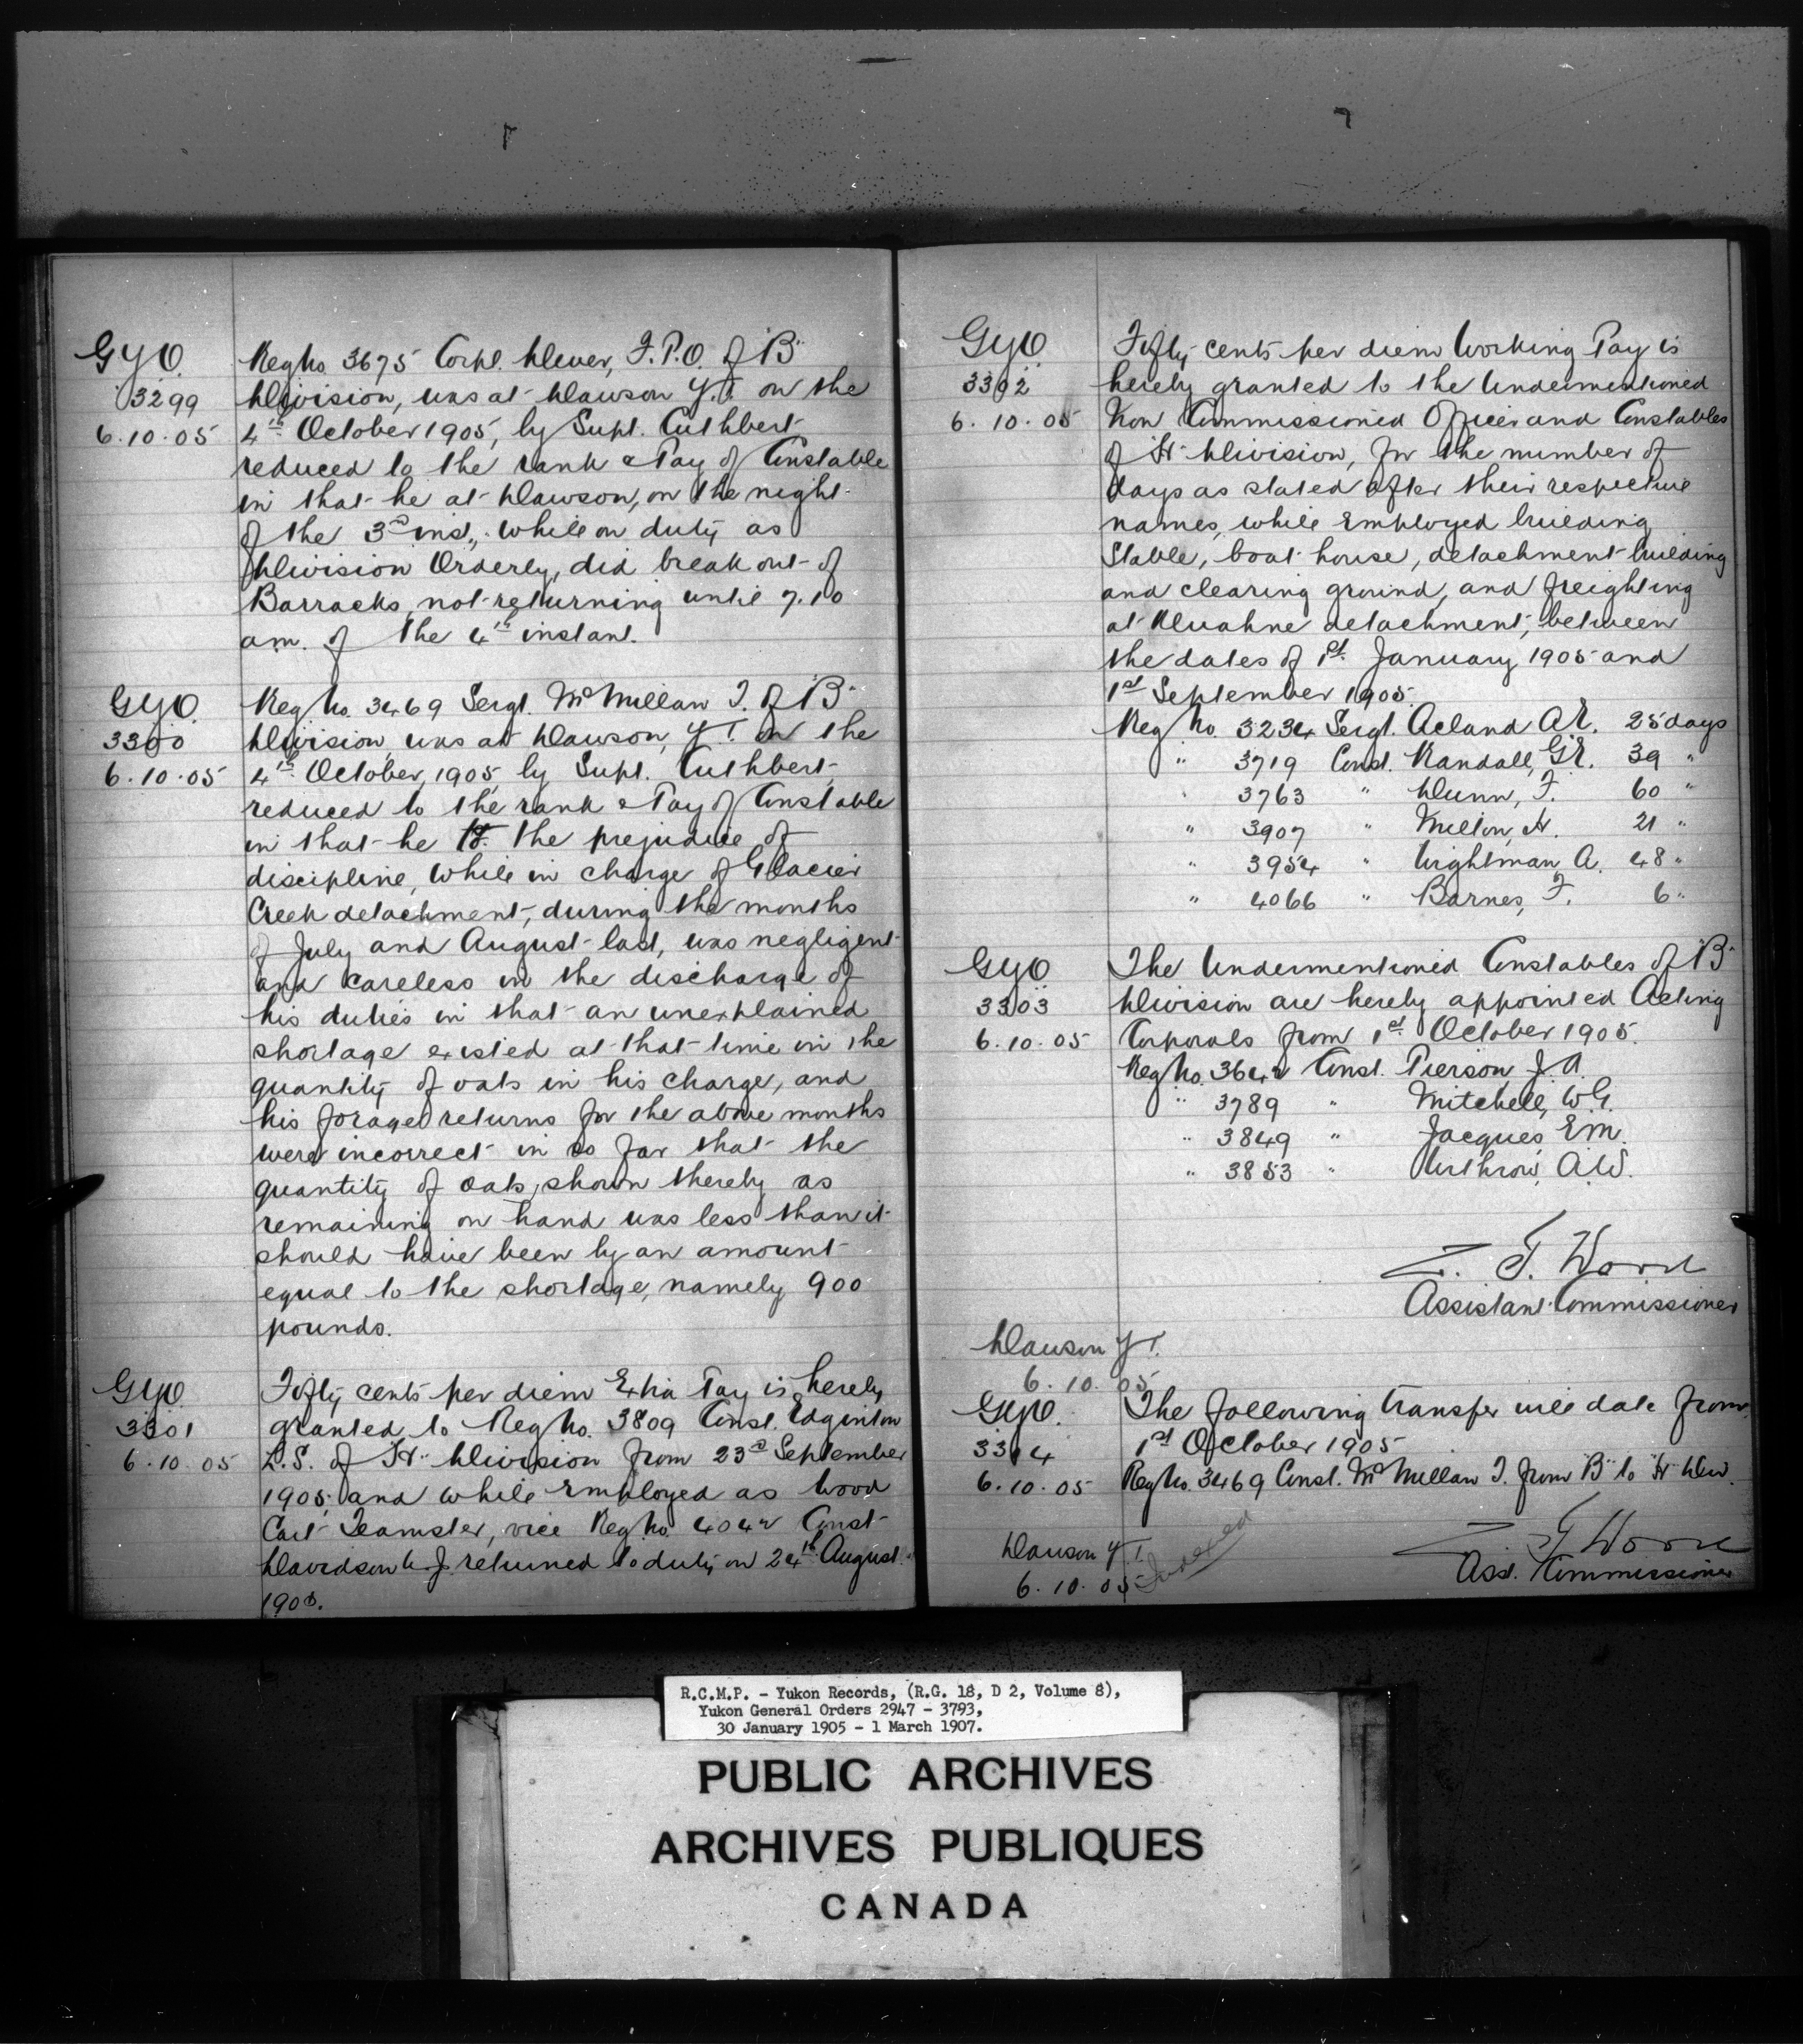 G.Y.O.
3299
6.10.05
Reg No. 3675 Corpl. Dever, F.P.O. of "B"
Division, was at Dawson Y.T. on the
4th October 1905, by Supt. Cuthbert
reduced to the rank & Pay of Constable
in that he at Dawson, on the night
of the 3rd inst., while on duty as
Division Orderly, did break out of
Barracks, not returning until 7.10
a.m. of the 4th instant.
G.Y.O.
3300
6.10.05
Reg No. 3469 Sergt. McMillan T. of "B"
Division, was at Dawson, Y.T. on the
4th October, 1905, by Supt. Cuthbert,
reduced to the rank & Pay of Constable
in that he to the prejudice of
discipline, while in charge of Glacier
Creek detachment, during the months
of July and August last, was negligent
and careless in the discharge of
his duties in that an unexplained
shortage existed at that time in the
quantity of oats in his charge, and
his forage returns for the above months
were incorrect in so far that the
quantity of oats, shown thereby as
remaining on hand was less than it
should have been by an amount
equal to the shortage, namely 900
pounds.
G.Y.O.
3301
6.10.05
Fifty cents per diem Extra Pay is hereby
granted to Reg No. 3809 Const. Edginton
L.S. of "H" Division from 23rd September
1905, and while Employed as Wood
Cart Teamster, vice Reg No. 4042 Const
Davidson returned to duty on 24th August
1905.
G.Y.O.
3302
6.10.05
Fifty cents per diem Working Pay is
hereby granted to the Undermentioned
Non Commissioned Officer and Constables
of "H" Division, for the number of
days as stated after their respective
names, while Employed building
Stable, boat house, detachment building
and clearing ground, and freighting
at Kluahne detachment, between
the dates of 1st January 1905 and
1st September 1905.
Reg No. 3234 Sergt. Acland A.E. 25 days
" 3719 Const. Randall, G.E. 39 "
" 3763 " Dunn, F. 60 "
" 3907 " Mellon, H. 21 "
" 3954 " Wightman A. 48 "
" 4066 " Barnes, F. 6 "
G.Y.O.
3303
6.10.05
The Undermentioned Constables of "B"
Division are hereby appointed Acting
Corporals from 1st October 1905.
Reg No. 3642 Const. Pierson J.A.
" 3789 " Mitchell, W.G.
" 3849 " Jacques E.M.
" 3853 " Withrow, A.W.
Z. T. Wood
Assistant Commissioner
Dawson Y.T.
6.10.05
G.Y.O.
3304
6.10.05
The following transfer will date from
1st October 1905
Reg No. 3469 Const. McMillan T. from "B" to "H" Div.
Z. T. Wood
Asst. Commissioner
Dawson Y.T.
6.10.05
Indexed
R.C.M.P. - Yukon Records, (R.G. 18, D 2, Volume 8),
Yukon General Orders 2947 - 3793,
30 January 1905 - 1 March 1907.
PUBLIC ARCHIVES
ARCHIVES PUBLIQUES
CANADA